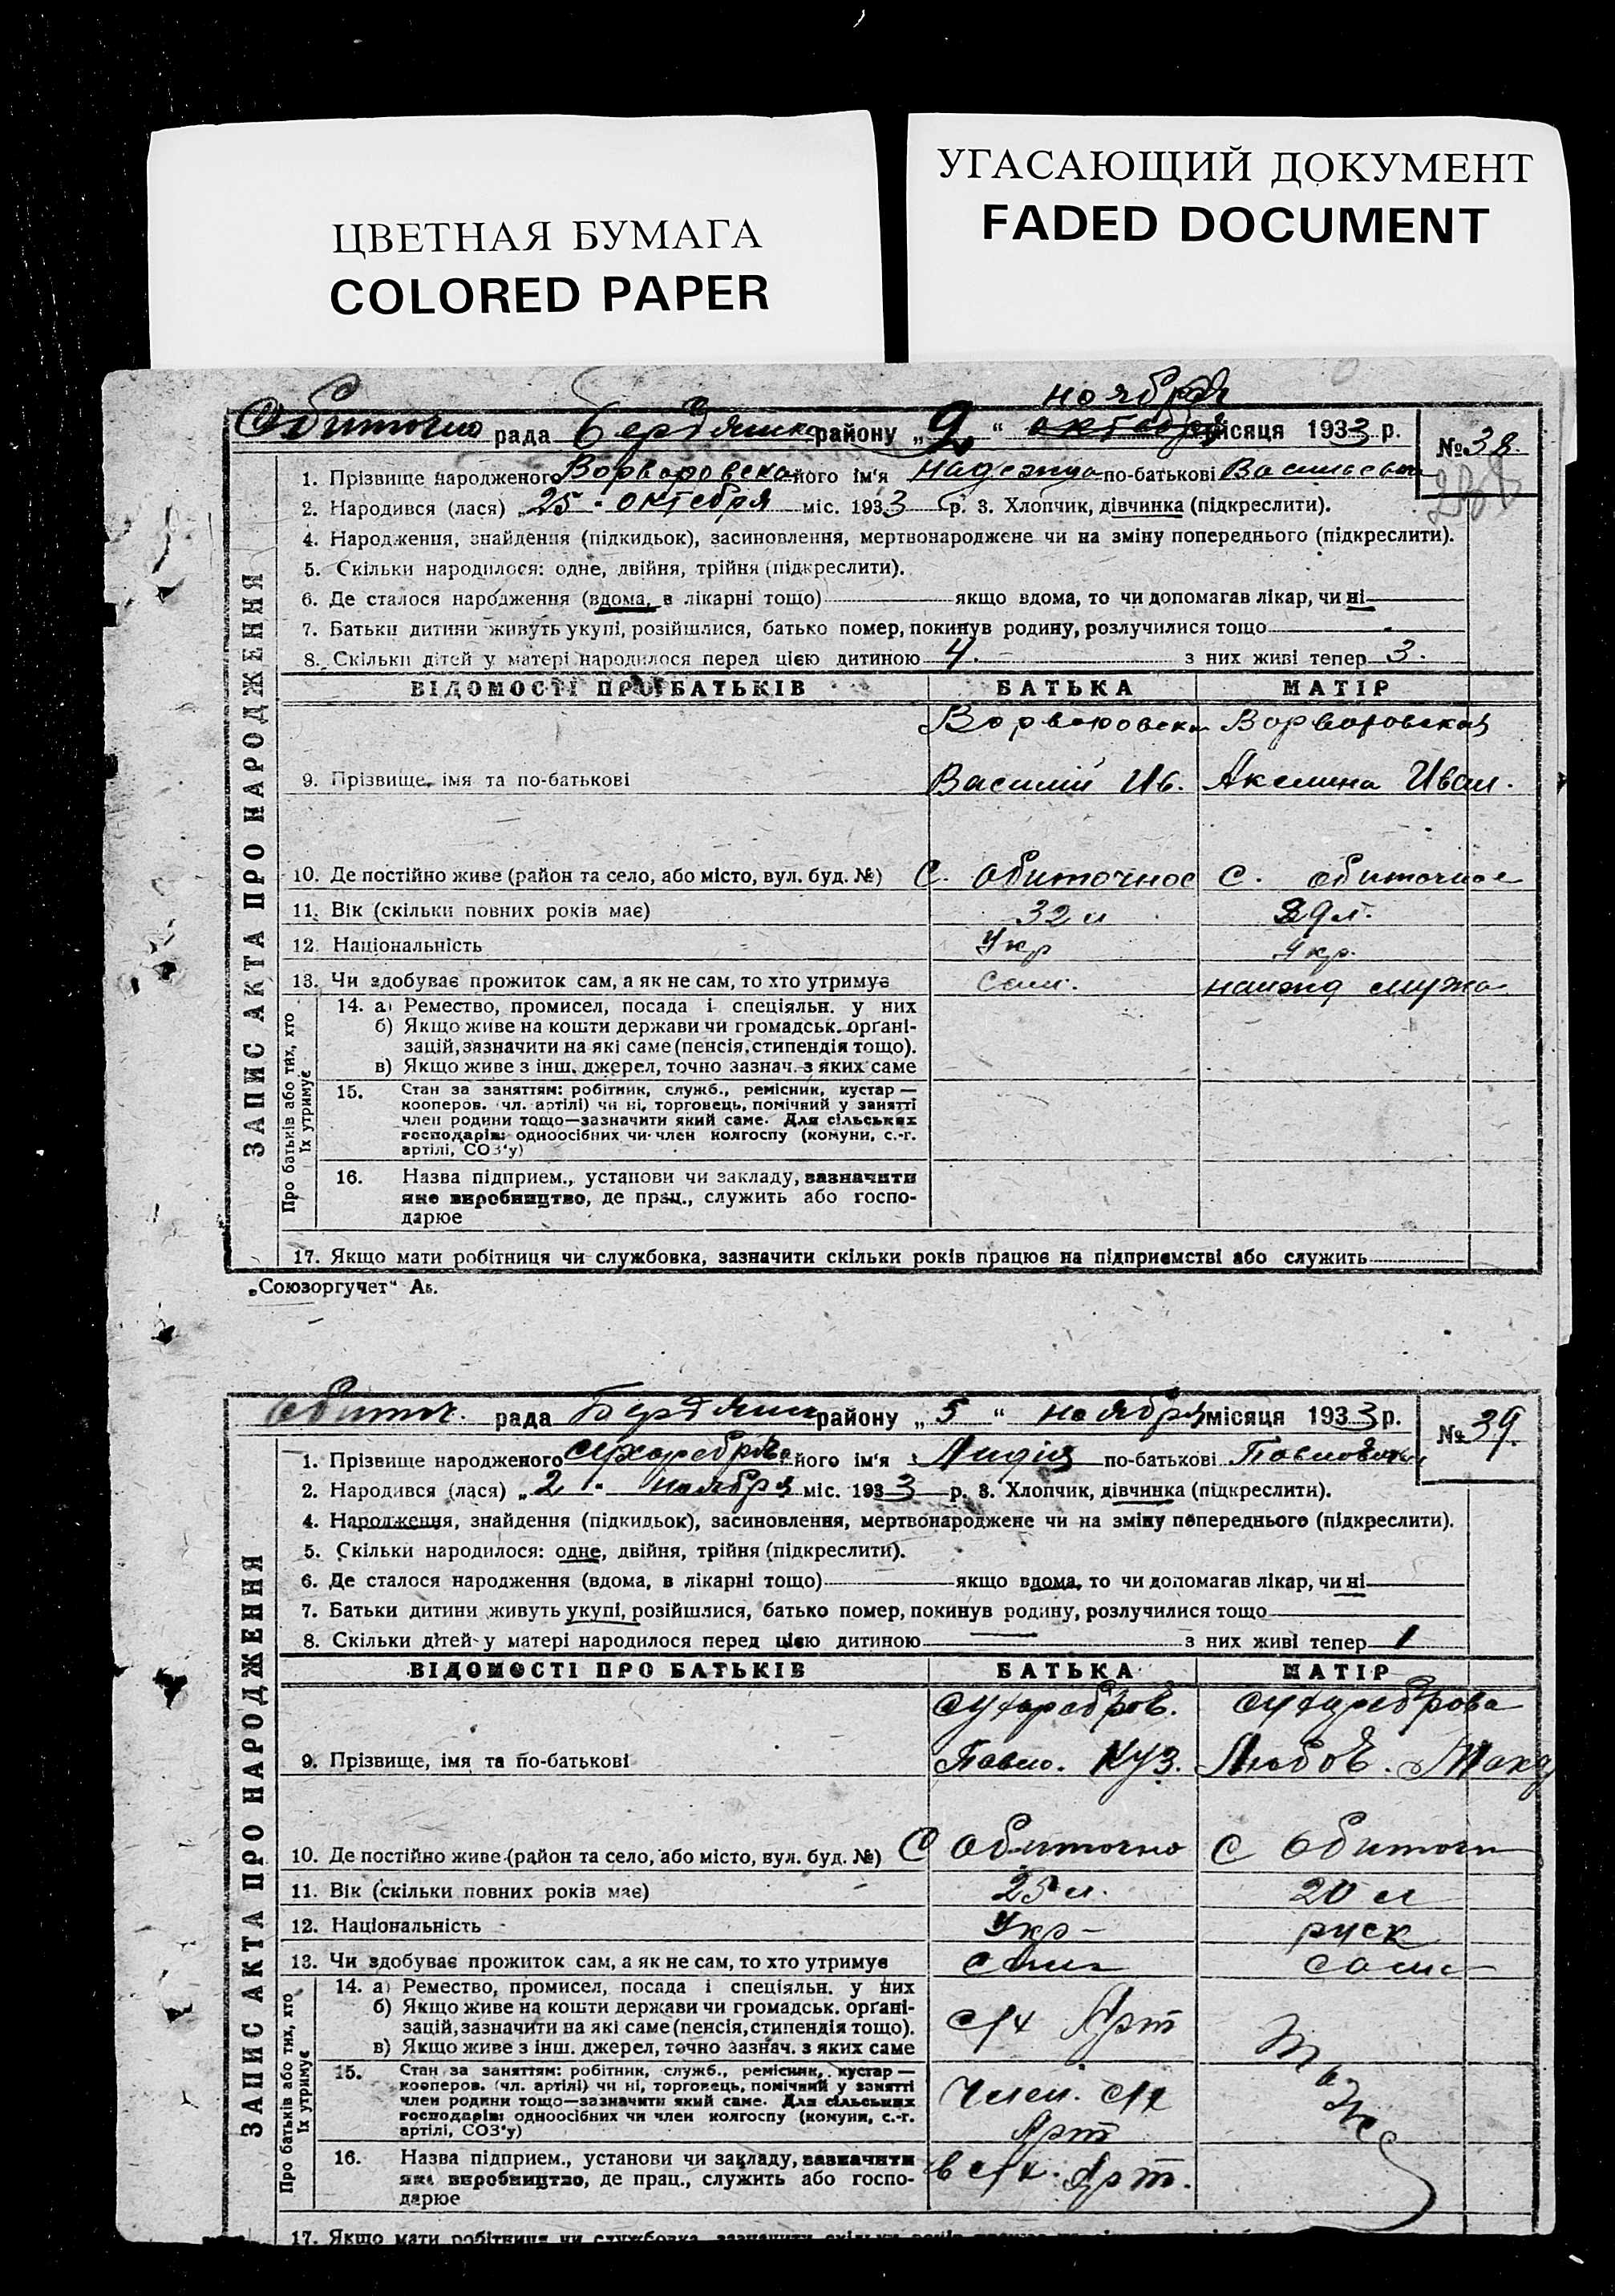 ЦВЕТНАЯ БУМАГА
COLORED PAPER
УГАСАЮЩИЙ ДОКУМЕНТ
FADED DOCUMENT
ноября
Обиточно рада Бердянско району „2“ октября місяця 1933 р. № 38.
1. Прізвище народженого Ворваровска його ім'я Надежда по-батькові Васильевн
2. Народився (лася) „25“ октября міс. 1933 р. 3. Хлопчик, дівчинка (підкреслити).
4. Народження, знайдення (підкидьок), засиновлення, мертвонароджене чи на зміну попереднього (підкреслити).
5. Скільки народилося: одне, двійня, трійня (підкреслити).
6. Де сталося народження (вдома, в лікарні тощо) якщо вдома, то чи допомагав лікар, чи ні
7. Батьки дитини живуть укупі, розійшлися, батько помер, покинув родину, розлучилися тощо
8. Скільки дітей у матері народилося перед цією дитиною 4. з них живі тепер 3.
ВІДОМОСТІ ПРО БАТЬКІВ БАТЬКА МАТІР
Ворваровски Ворворовская
9. Прізвище, імя та по-батькові Василий Ив. Акелина Иван.
10. Де постійно живе (район та село, або місто, вул. буд. №) С. Обиточное с. обиточное
11. Вік (скільки повних років має) 32 л 29 л.
12. Національність Укр Укр.
13. Чи здобуває прожиток сам, а як не сам, то хто утримує Сам. на ижд мужа
14. а) Ремество, промисел, посада і спеціяльн. у них
б) Якщо живе на кошти держави чи громадськ. орґані-
зацій, зазначити на які саме (пенсія, стипендія тощо).
в) Якщо живе з інш. джерел, точно зазнач. з яких саме
15. Стан за заняттям: робітник, служб., ремісник, кустар —
кооперов. (чл. артілі) чи ні, торговець, помічний у занятті
член родини тощо—зазначити який саме. Для сільських
господарів: одноосібних чи член колгоспу (комуни, с.-г.
артілі, СОЗ'у)
16. Назва підприєм., установи чи закладу, зазначити
яке виробництво, де прац., служить або госпо-
дарює
17. Якщо мати робітниця чи службовка, зазначити скільки років працює на підприємстві або служить
ЗАПИС АКТА ПРО НАРОДЖЕННЯ
Про батьків або тих, хто
їх утримує
„Союзоргучет“ Аб.
обиточ. рада Бердянск району „5“ ноября місяця 1933 р. № 39.
1. Прізвище народженого Сухореброва його ім'я Лидия по-батькові Павловна
2. Народився (лася) „2“ ноября міс. 1933 р. 3. Хлопчик, дівчинка (підкреслити).
4. Народження, знайдення (підкидьок), засиновлення, мертвонароджене чи на зміну попереднього (підкреслити).
5. Скільки народилося: одне, двійня, трійня (підкреслити).
6. Де сталося народження (вдома, в лікарні тощо) якщо вдома, то чи допомагав лікар, чи ні
7. Батьки дитини живуть укупі, розійшлися, батько помер, покинув родину, розлучилися тощо
8. Скільки дітей у матері народилося перед цією дитиною — з них живі тепер 1
ВІДОМОСТІ ПРО БАТЬКІВ БАТЬКА МАТІР
Сухоребров. Сухореброва
9. Прізвище, імя та по-батькові Павло. Куз. Любовь.
10. Де постійно живе (район та село, або місто, вул. буд. №) С Обиточно с Обиточн
11. Вік (скільки повних років має) 25 л. 20 л
12. Національність Укр- руск
13. Чи здобуває прожиток сам, а як не сам, то хто утримує сам сама
14. а) Ремество, промисел, посада і спеціяльн. у них
б) Якщо живе на кошти держави чи громадськ. орґані-
зацій, зазначити на які саме (пенсія, стипендія тощо).
в) Якщо живе з інш. джерел, точно зазнач. з яких саме
с/х Арт
15. Стан за заняттям: робітник, служб., ремісник, кустар —
кооперов. (чл. артілі) чи ні, торговець, помічний у занятті
член родини тощо—зазначити який саме. Для сільських
господарів: одноосібних чи член колгоспу (комуни, с.-г.
артілі, СОЗ'у)
Член. с/х
Арт
тоже
16. Назва підприєм., установи чи закладу, зазначити
яке виробництво, де прац., служить або госпо-
дарює
в с/х. Арт.
17. Якщо мати робітниця чи службовка, зазначити скільки років
ЗАПИС АКТА ПРО НАРОДЖЕННЯ
Про батьків або тих, хто
їх утримує